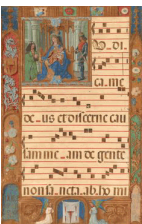 Vdi
ca me
de us et discerne cau
sam me am de gente
non sancta ab ho mi